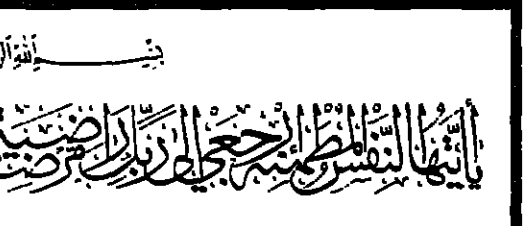 بِسْمِ ٱللَّهِ
يَا أَيَّتُهَا النَّفْسُ الْمُطْمَئِنَّةُ ارْجِعِي إِلَى رَبِّكِ رَاضِيَةً مَرْضِيَّةً